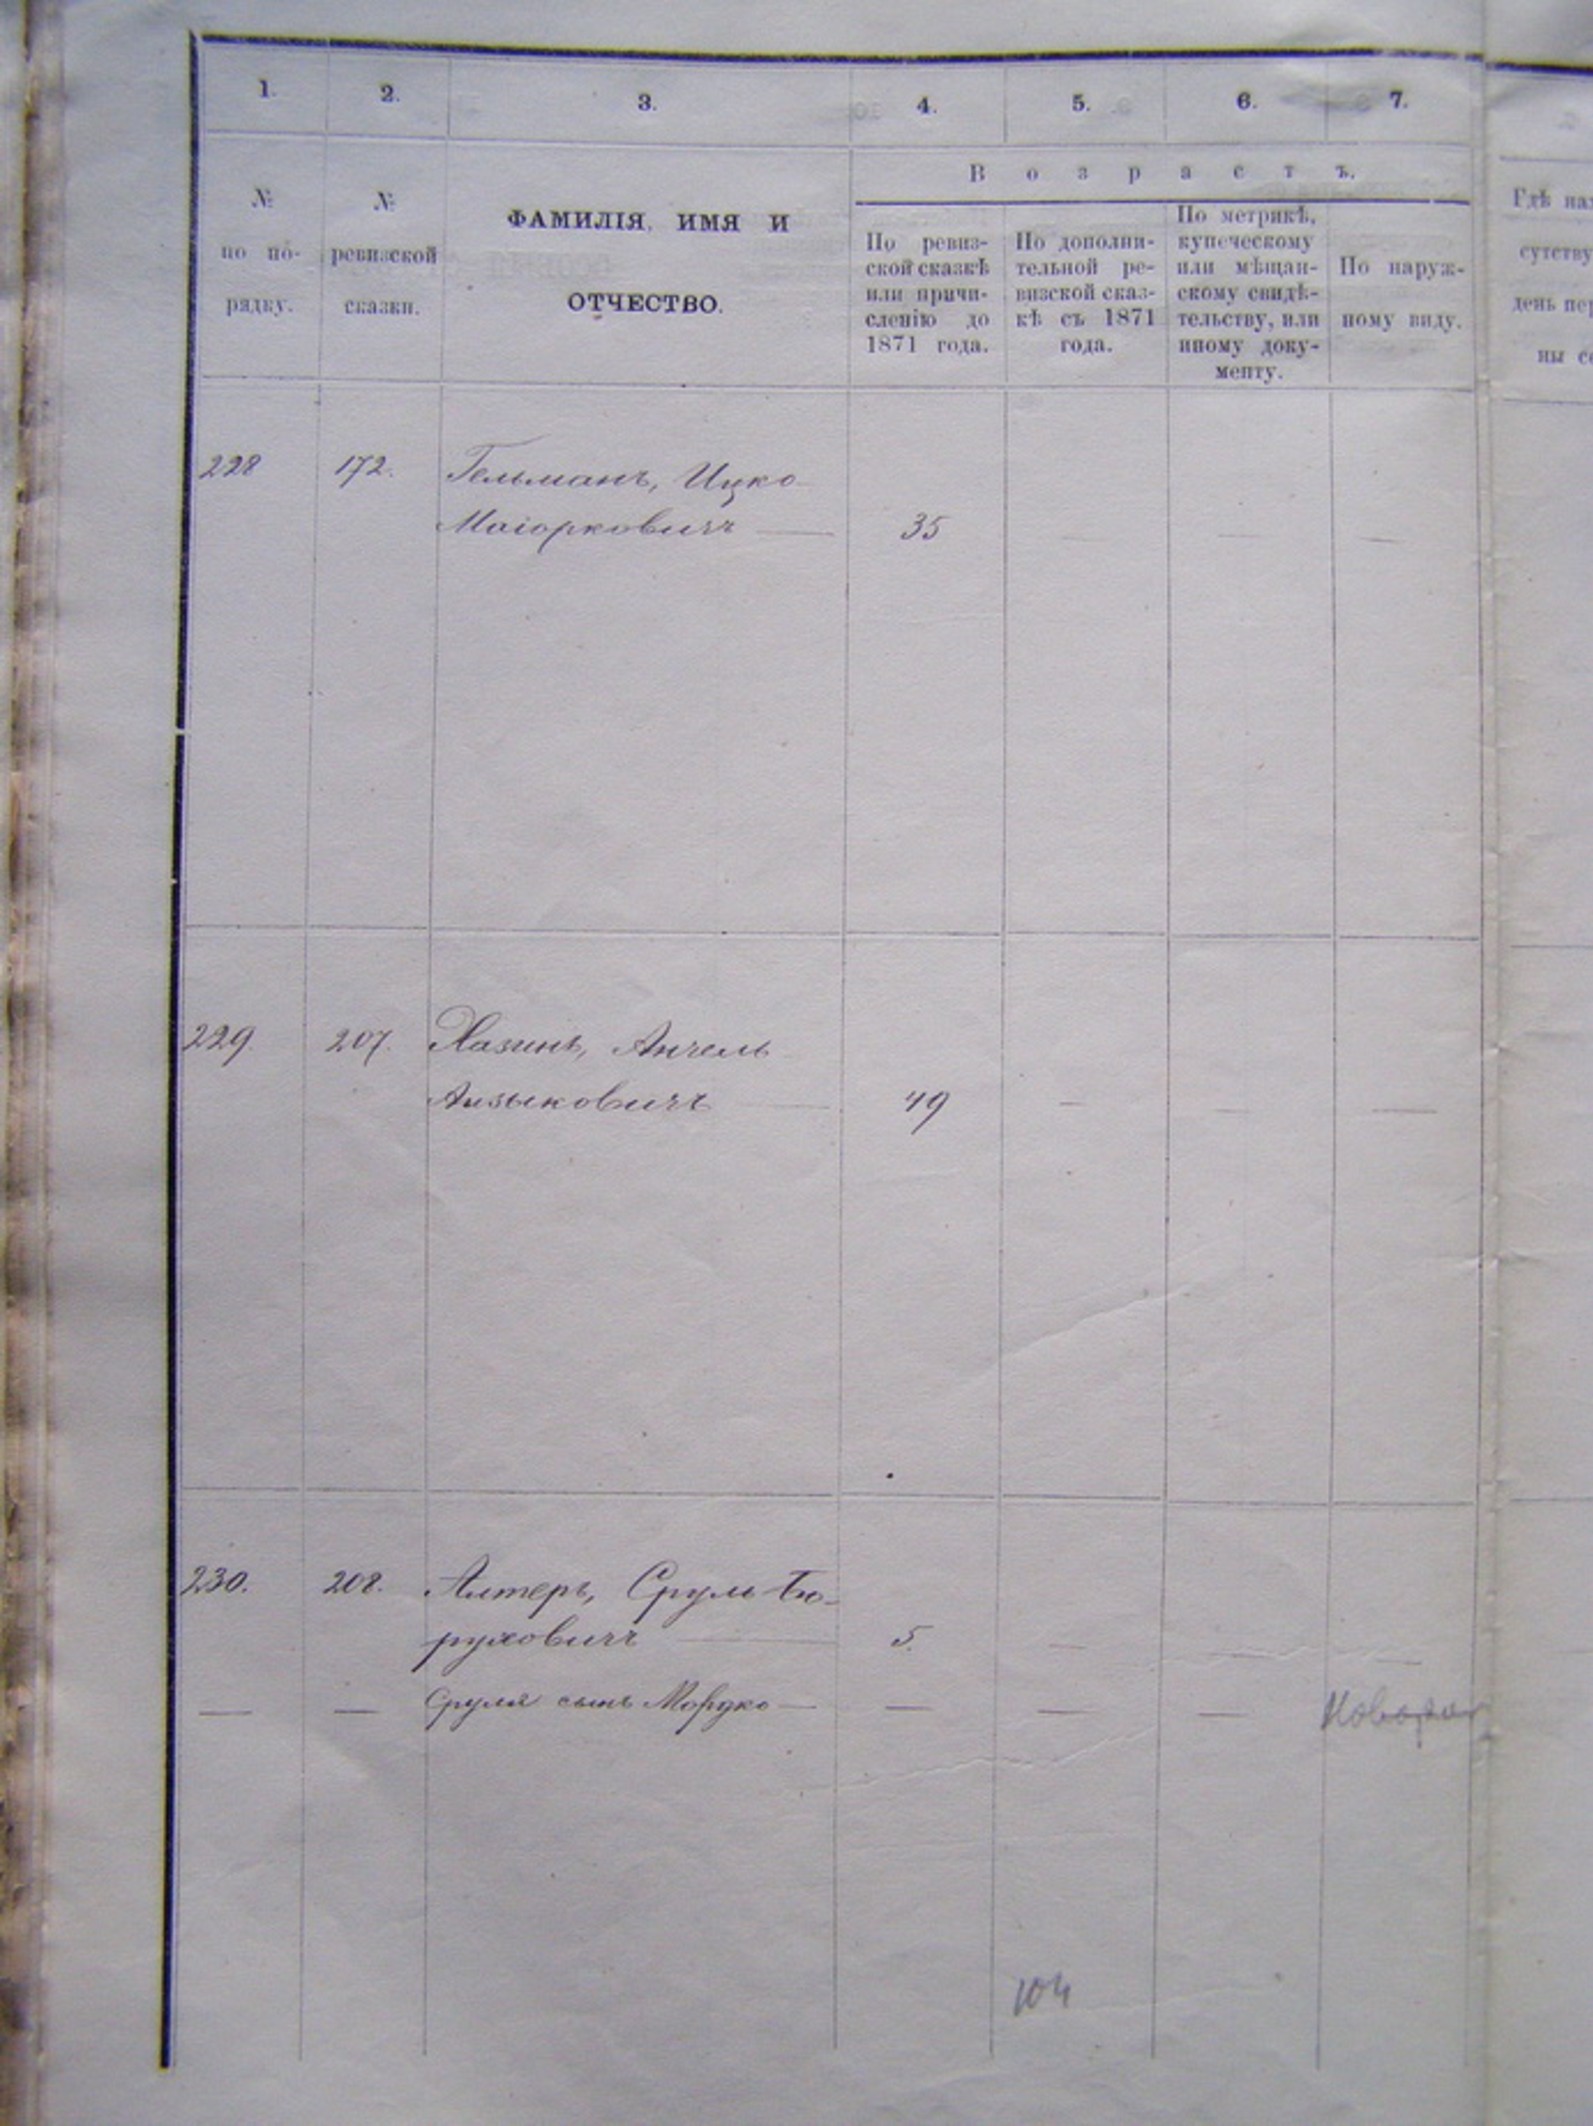 1. 2. 3. 4. 5. 6. 7.
Возрастъ.
№
по по-
рядку.
№
ревизской
сказки.
ФАМИЛІЯ, ИМЯ И
ОТЧЕСТВО.
По ревиз-
ской сказкѣ
или причи-
сленію до
1871 года.
По дополни-
тельной ре-
визской сказ-
кѣ съ 1871
года.
По метрикѣ,
купеческому
или мѣщан-
скому свидѣ-
тельству, или
иному доку-
менту.
По наруж-
ному виду.
Гдѣ на
сутству
день пер
ны с
228 172. Гельманъ, Ицко
Маіорковичъ — 35 — — —
229. 207. Хазинъ, Анчель
Аизыковичъ — 49 — — —
230. 208. Алтеръ, Сруль Бо-
руховичъ — 5. — — —
— — Сруля сынъ Мордко — — — — Новорож
104